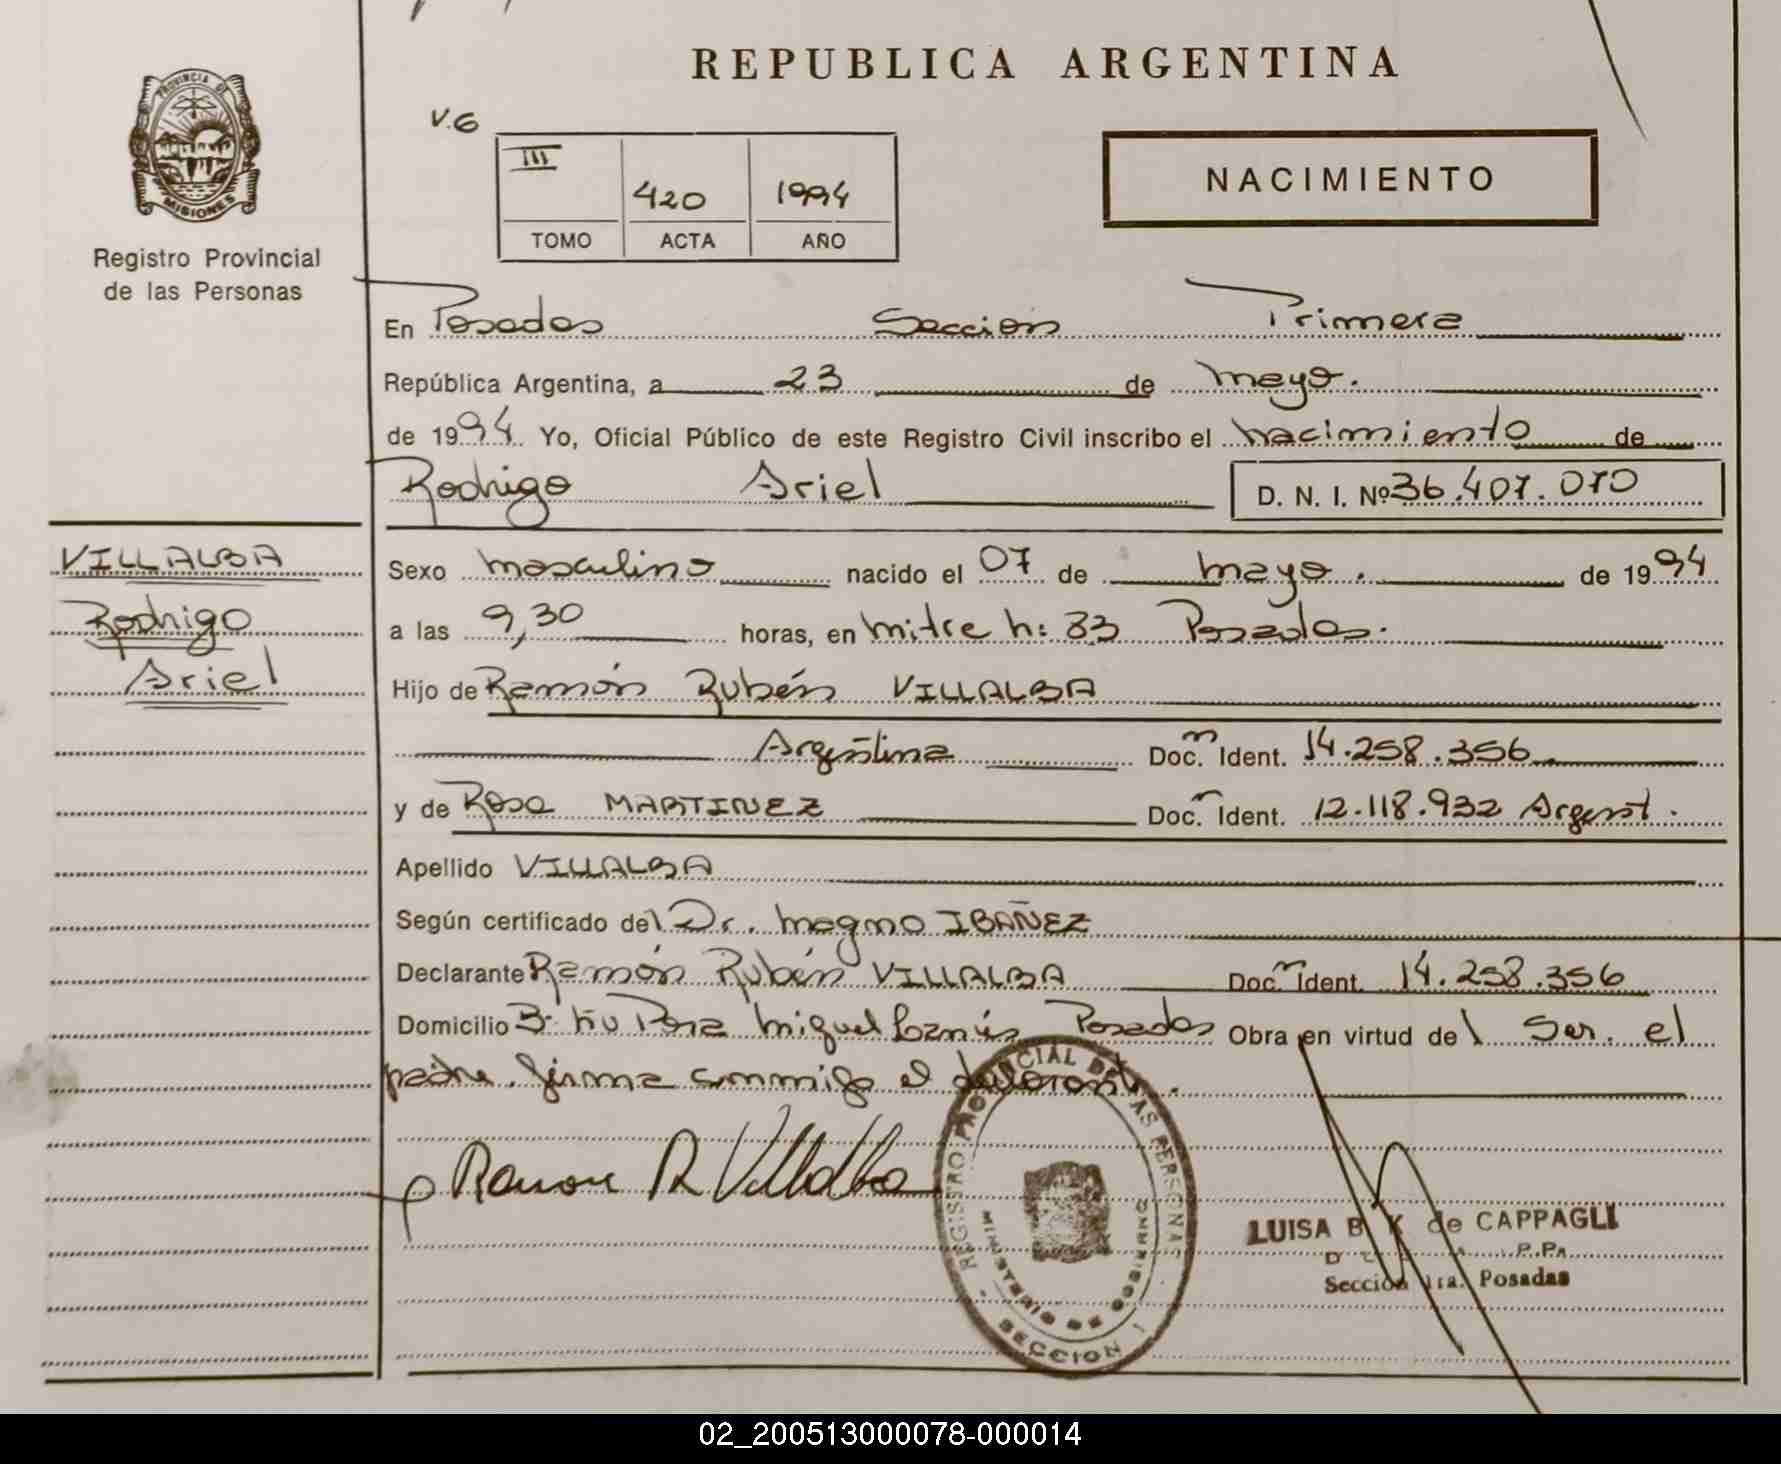 REPUBLICA ARGENTINA
PROVINCIA DE
MISIONES
Registro Provincial
de las Personas
V.6
III 420 1994
TOMO ACTA AÑO
NACIMIENTO
En Posadas Seccion Primera
República Argentina, a 23 de mayo.
de 1994. Yo, Oficial Público de este Registro Civil inscribo el nacimiento de
Rodrigo Ariel D. N. I. Nº 36.407.070
VILLALBA
Rodrigo
Ariel
Sexo masculino nacido el 07 de mayo. de 1994
a las 9,30 horas, en mitre n: 83 Posadas.
Hijo de Ramón Rubén VILLALBA
Argentina Doc. Ident. 14.258.356
y de Rosa MARTINEZ Doc. Ident. 12.118.932 Argent.
Apellido VILLALBA
Según certificado del Dr. magno IBAÑEZ
Declarante Ramón Rubén VILLALBA Doc. Ident. 14.258.356
Domicilio Miguel Lanús Posadas Obra en virtud del Ser. el
padre. firma conmigo el declarante.
Ramon R Villalba
REGISTRO PROVINCIAL DE LAS PERSONAS
MINISTERIO DE GOBIERNO
SECCION 1
LUISA B K de CAPPAGLI
Sección 1ra. Posadas
02_200513000078-000014